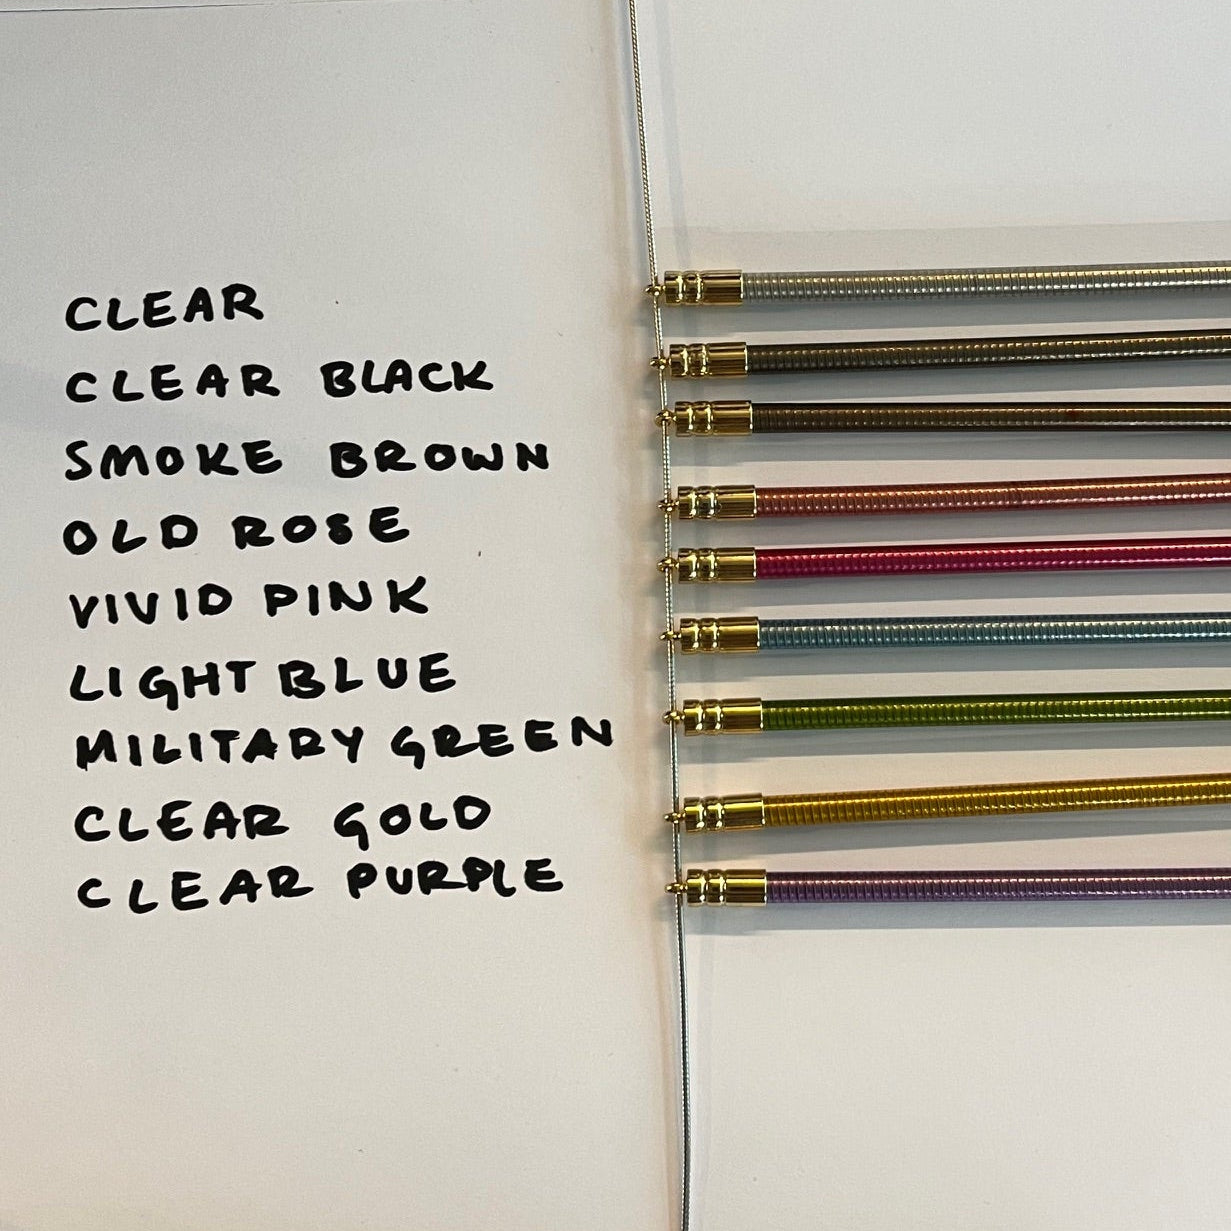 CLEAR
CLEAR BLACK
SMOKE BROWN
OLD ROSE
VIVID PINK
LIGHT BLUE
MILITARY GREEN
CLEAR GOLD
CLEAR PURPLE